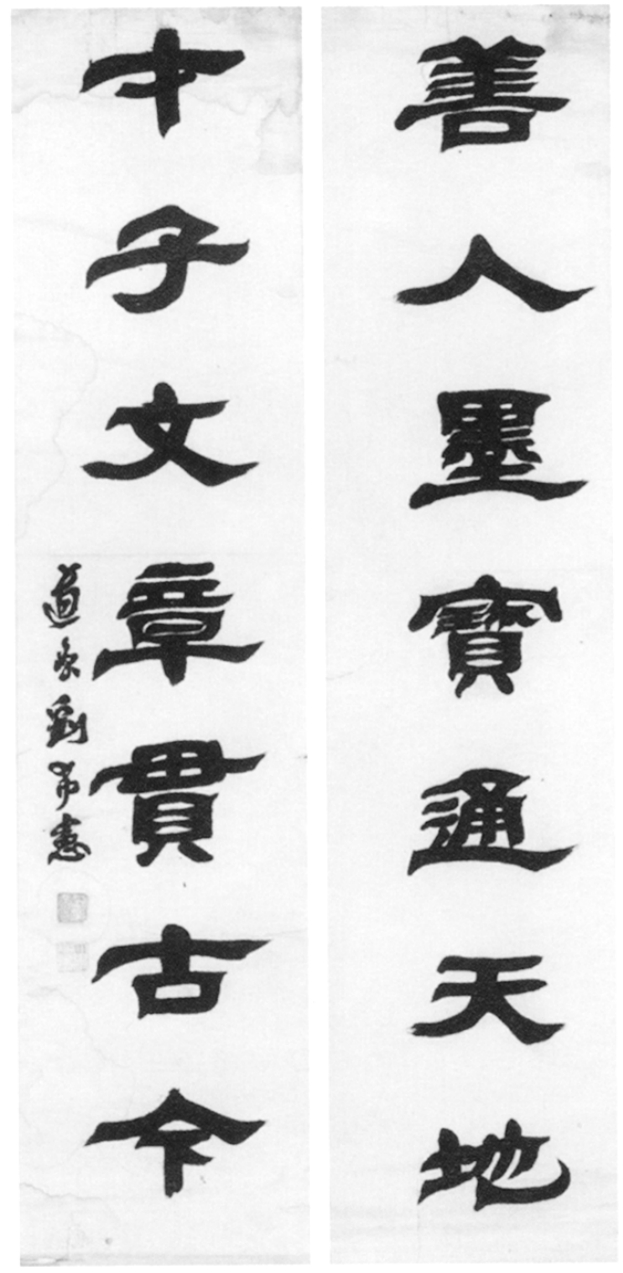 善人墨寶通天地
才子文章貫古今
道原劉希憲